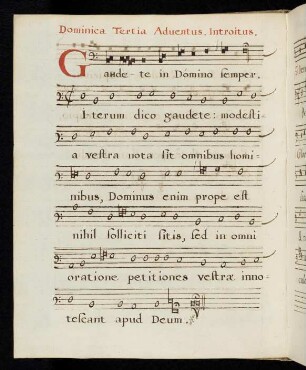 Dominica Tertia Adventus. Introitus.
Gaude-te in Domino semper.
I-terum dico gaudete: modesti-
a vestra nota sit omnibus homi-
nibus, Dominus enim prope est
nihil solliciti sitis, sed in omni
oratione petitiones vestræ inno-
tescant apud Deum.